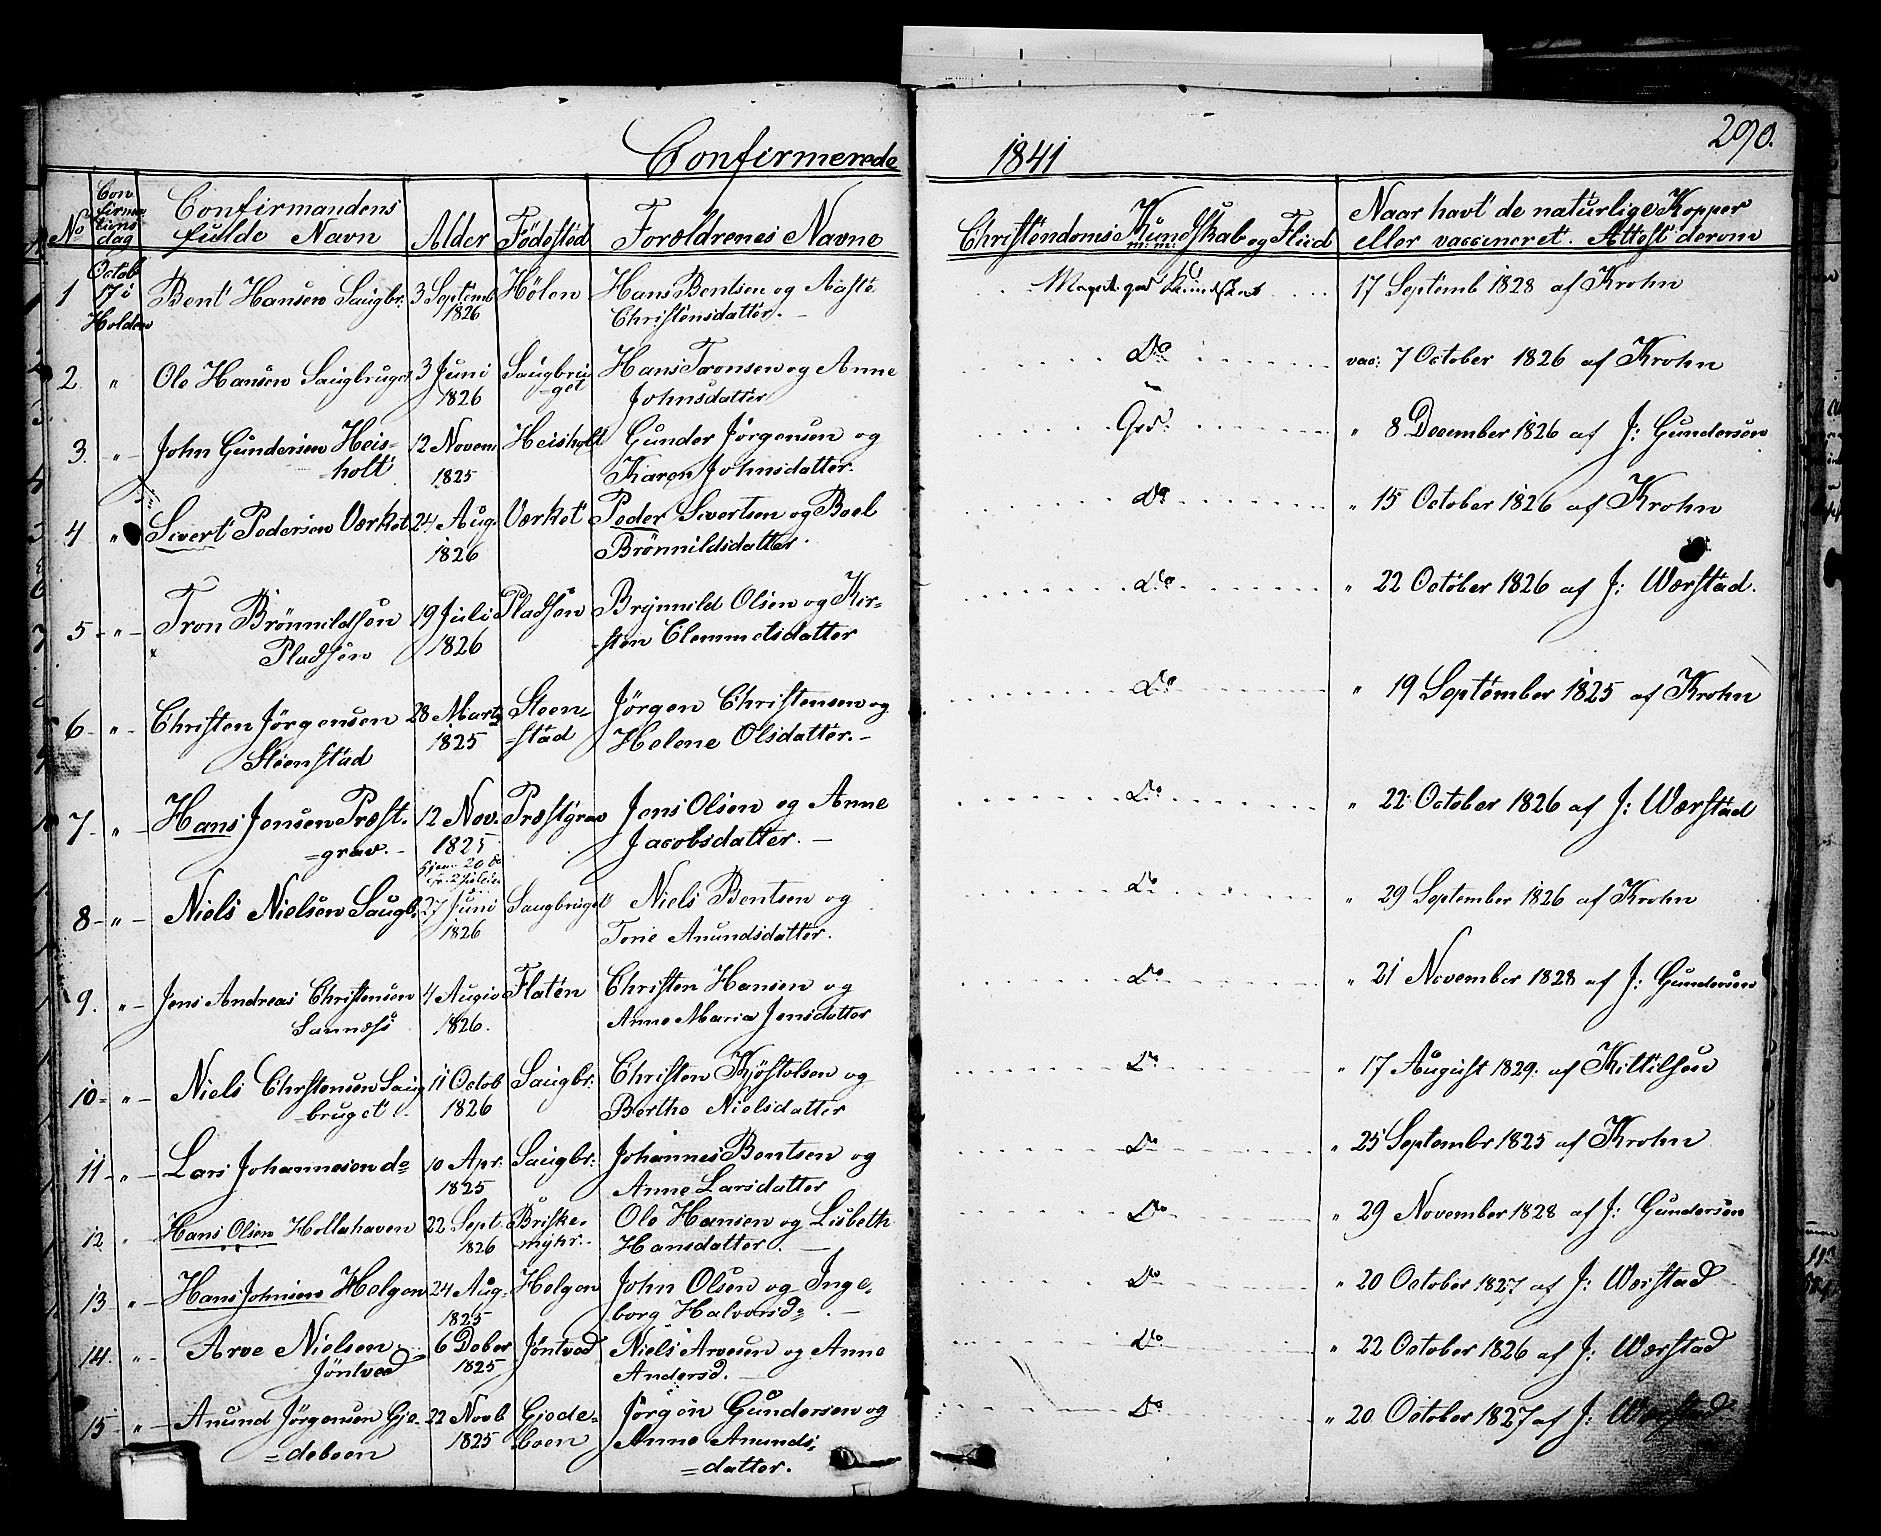 290.
Confirmerede 1841
No Confirmationsdag Confirmandens fulde Navn Alder Födestöd Forældrenes Navne Christendoms Kundskab og Fliid Naar havt de naturlige Kopper eller vaccineret. Attest derom
1 Octob 17 i Holden Bent Hansen Saugbr. 3 Septemb 1826 Hölen Hans Bentsen og Aaste Christensdatter. Meget god Kundskab 17 Septemb 1828 af Krohn
2. " Ole Hansen Saugbruget 3 Juni 1826 Saugbruget Hans Tronsen og Anne Johnsdatter Do vac: 7 October 1826 af Krohn
3. " John Gundersen Heisholt 12 Novem 1825 Heisholt Gunder Jörgensen og Karen Johnsdatter. God. " 8 December 1826 af J: Gundersen
4 " Sivert Pedersen Værket 24 Aug. 1826 Værket Peder Sivertsen og Boel Brönnildsdatter. Do " 15 October 1826 af Krohn
5 " Tron Brönnildsen Pladsen 19 Juli 1826 Pladsen Brynnild Olsen og Kirsten Clemmetsdatter Do " 22 October 1826 af J: Wærstad.
6 " Christen Jörgensen Steenstad 28 Marts 1825 Steenstad Jörgen Christensen og Helene Olsdatter. Do " 19 September 1825 af Krohn
7 " Hans Jensen Præstgrav. 12 Nov. 1825 Præstgrav Jens Olsen og Anne Jacobsdatter. Do " 22 October 1826 af J: Wærstad
8 " Niels Nielsen Saugb. 27 Juni 1826 Saugbruget Niels Bentsen og Tone Anundsdatter. Do " 29 September 1826 af Krohn
9. " Jens Andreas Christensen Sannæss 4 Augio 1826. Flaten Christen Hansen og Anne Maria Jensdatter Do " 21 November 1828 af J: Gundersen
10 " Niels Christensen Saugbruget 11 Octob 1826 Saugbr: Christen Kjöstolsen og Berthe Nielsdatter Do " 17 August 1829. af Kittilsen
11 " Lars Johannesen do 10 Apr: 1825 Saugbr: Johannes Bentsen og Anne Larsdatter Do " 25 Septembr 1825 af Krohn
12 " Hans Olsen Hollahaven 22 Sept. 1826 Briskemyhr. Ole Hansen og Lisbeth Hansdatter. Do " 29 November 1828 af J: Gundersen
13 " Hans Johnsen Helgen 24 Aug. 1825 Helgen John Olsen og Ingeborg Halvorsd. Do " 20 October 1827 af J: Wærstad
14. " Arve Nielsen Jöntved 6 Dober 1825 Jöntved Niels Arvesen og Anne Andersd. Do " 22 October 1826 af J: Wærstad
15 " Anund Jörgensen Gjedeboen 22 Novb 1825 Gjedeboen Jörgen Gundersen og Anne Anundsdatter. Do " 20 October 1827 af J: Wærstad